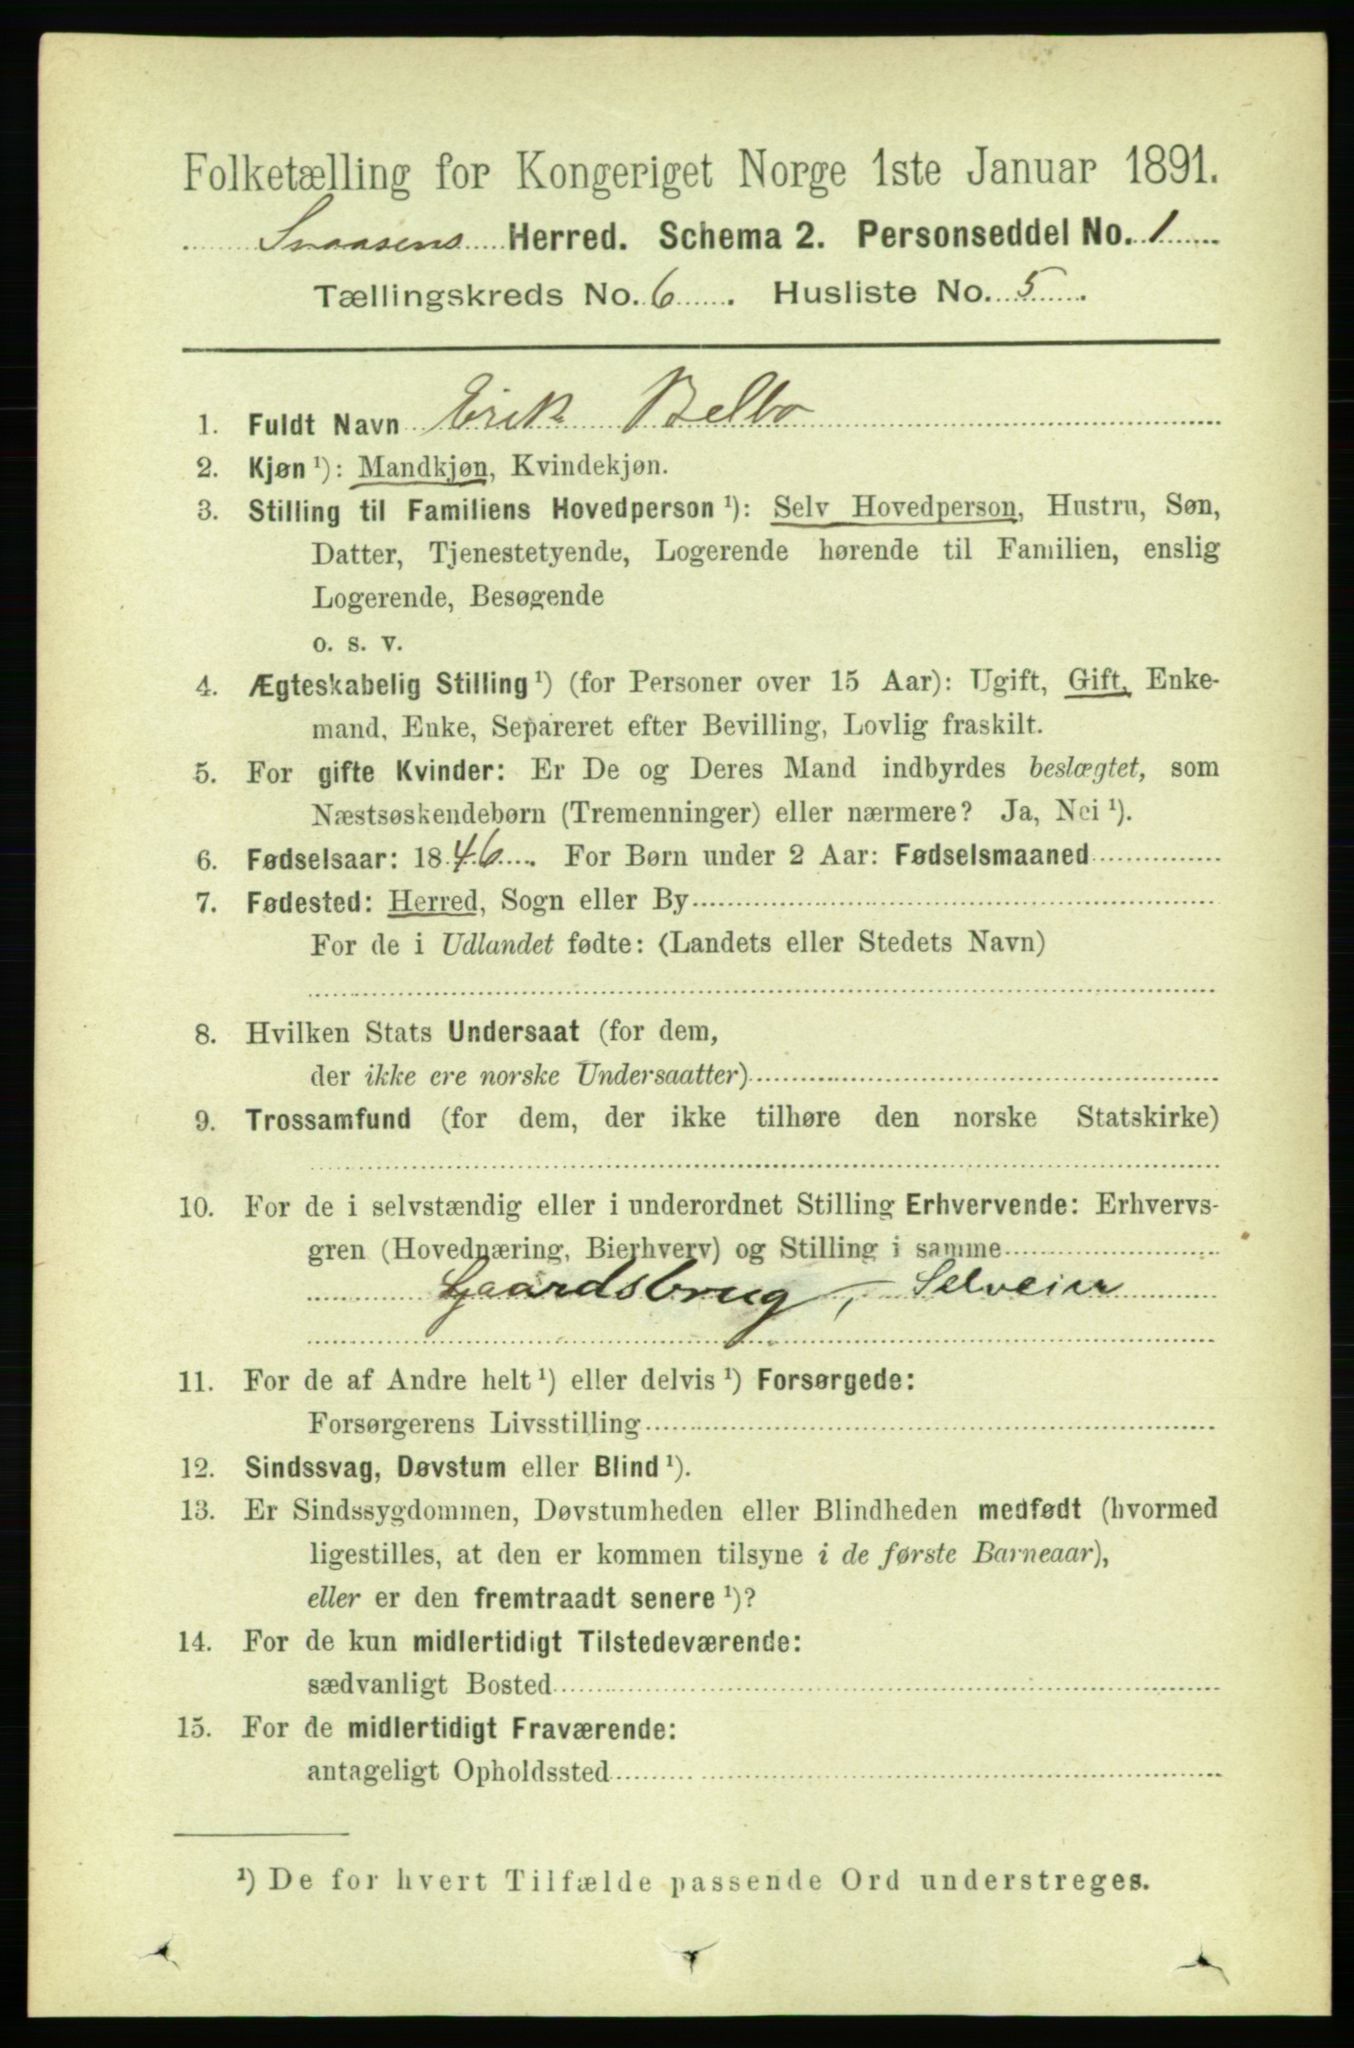 Folketælling for Kongeriget Norge 1ste Januar 1891.
Snaasens Herred. Schema 2. Personseddel No. 1
Tællingskreds No. 6. Husliste No. 5.
1. Fuldt Navn Erik Belbo
2. Kjøn ¹): Mandkjøn, Kvindekjøn.
3. Stilling til Familiens Hovedperson ¹): Selv Hovedperson, Hustru, Søn,
Datter, Tjenestetyende, Logerende hørende til Familien, enslig
Logerende, Besøgende
o. s. v.
4. Ægteskabelig Stilling ¹) (for Personer over 15 Aar): Ugift, Gift, Enke-
mand, Enke, Separeret efter Bevilling, Lovlig fraskilt.
5. For gifte Kvinder: Er De og Deres Mand indbyrdes beslægtet, som
Næstsøskendebørn (Tremenninger) eller nærmere? Ja, Nei ¹).
6. Fødselsaar: 1846. For Børn under 2 Aar: Fødselsmaaned
7. Fødested: Herred, Sogn eller By
For de i Udlandet fødte: (Landets eller Stedets Navn)
8. Hvilken Stats Undersaat (for dem,
der ikke ere norske Undersaatter)
9. Trossamfund (for dem, der ikke tilhøre den norske Statskirke)
10. For de i selvstændig eller i underordnet Stilling Erhvervende: Erhvervs-
gren (Hovednæring, Bierhverv) og Stilling i samme
Gaardsbrug, Selveier
11. For de af Andre helt ¹) eller delvis ¹) Forsørgede:
Forsørgerens Livsstilling
12. Sindssvag, Døvstum eller Blind ¹).
13. Er Sindssygdommen, Døvstumheden eller Blindheden medfødt (hvormed
ligestilles, at den er kommen tilsyne i de første Barneaar),
eller er den fremtraadt senere ¹)?
14. For de kun midlertidigt Tilstedeværende:
sædvanligt Bosted
15. For de midlertidigt Fraværende:
antageligt Opholdssted
¹) De for hvert Tilfælde passende Ord understreges.